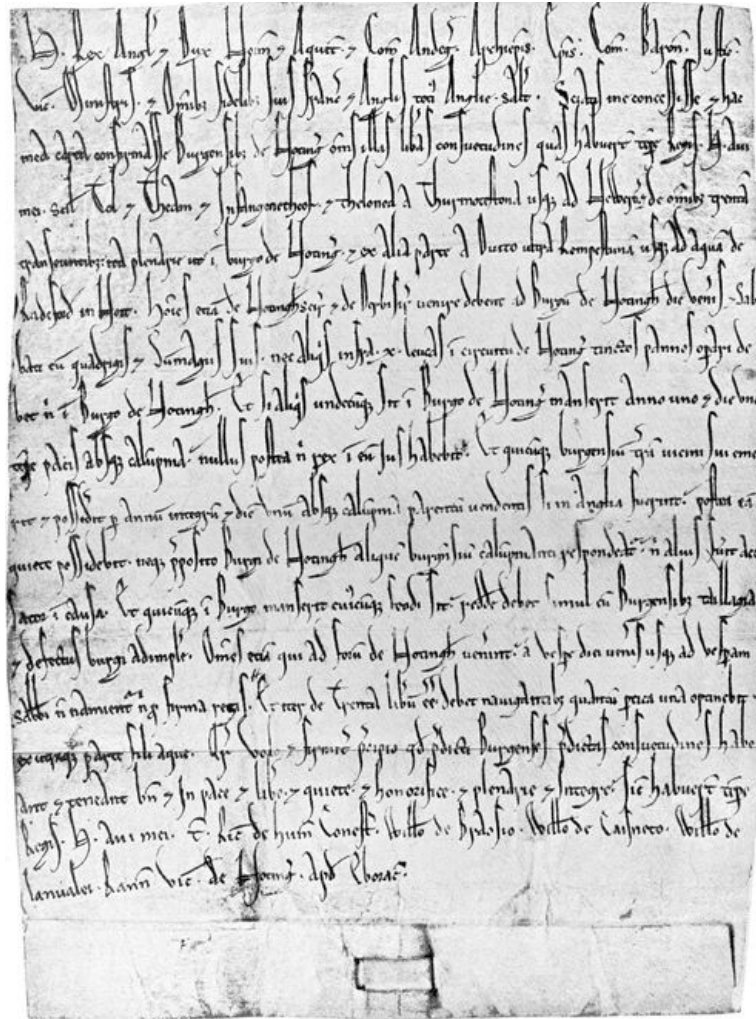 H. Rex Angl' & Dux Norm' & Aquit' & Com' Andeg' Archiepis. Epis. Com'. Baron'. Justic'.
Vic'. Ministris. & Omib3 fidelib3 suis Franc' & Anglis toti' Anglie. Salt'. Sciatis me concessisse & hac
mea carta confirmasse Burgensib3 de Noting' om's illas lib'as consuetudines quas habuer't tp'e Regis H. aui
mei. Scil' Tol & Theam & Infangenetheof. & thelonea a Thurmotestona usq3 ad Newerc' & de omib3 Trenta'
transeuntib3. ita plenarie ut i burgo de Noting'. & ex alia parte a Ducto ultra Rempestuna' usq3 ad aqua' de
Radeford in Nort. Ho'ies etia' de Notingh'scir' & de Derbisir' uenire debent ad Burgu' de Notingh' die ven'is & Sab
bati cu' quadrigis & Sumagiis suis. nec aliq's infra .x. leucas i circuitu de Noting' tinctos pannos op'ari de
bet n' i Burgo de Notingh'. Et si aliq's undecuq3 sit i Burgo de Noting' manserit anno uno & die uno
tp'e pacis absq3 calu'pnia. nullus postea n' Rex i eu' ius habebit. Et quicuq3 burgensiu' t'ra' uicini sui eme
rit & possederit p' annu' integru' & die' unu' absq3 calu'pnia parentu' uendentis si in Anglia fuerint. postea ea'
quiete possidebit. neq3 p'posito Burgi de Notingh' alique' burgensiu' calu'pnianti respondeat' n' alius fu'it accu
sator i causa. Et quicuq3 i Burgo manserit cui'cuq3 feodi sit. redd'e debet simul cu' Burgensib3 tallagia
& defectus burgi adimple'. Om's etia' qui ad foru' de Notingh' uenerint. a uesp'e diei uen'is usq3 ad uesp'am
Sabb'i n' namient' n' p' firma regis. Et iter de Trenta lib'um e'e debet nauigantib3 quantu' p'tica una optinebit
ex utraq3 parte fili aque. Q're uolo & firmit' p'cipio qd' p'dicti Burgenses p'dictas consuetudines habe
ant & teneant b'n & in pace & lib'e & quiete. & honorifice. & plenarie & integre. sic' habuer't tp'e
Regis. H. aui mei. T. Ric' de hum' Conest'. Will'o de Br'aosio. Will'o de Caisneto. Will'o de
Lanualei. Rann' vic' de Noting'. Apd' Eborac'.